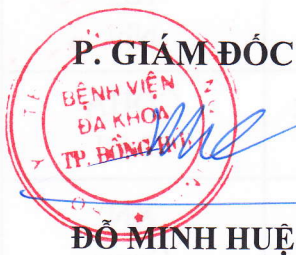 P. GIÁM ĐỐC
BỆNH VIỆN
ĐA KHOA
TP. ĐỒNG
ĐỖ MINH HUỆ